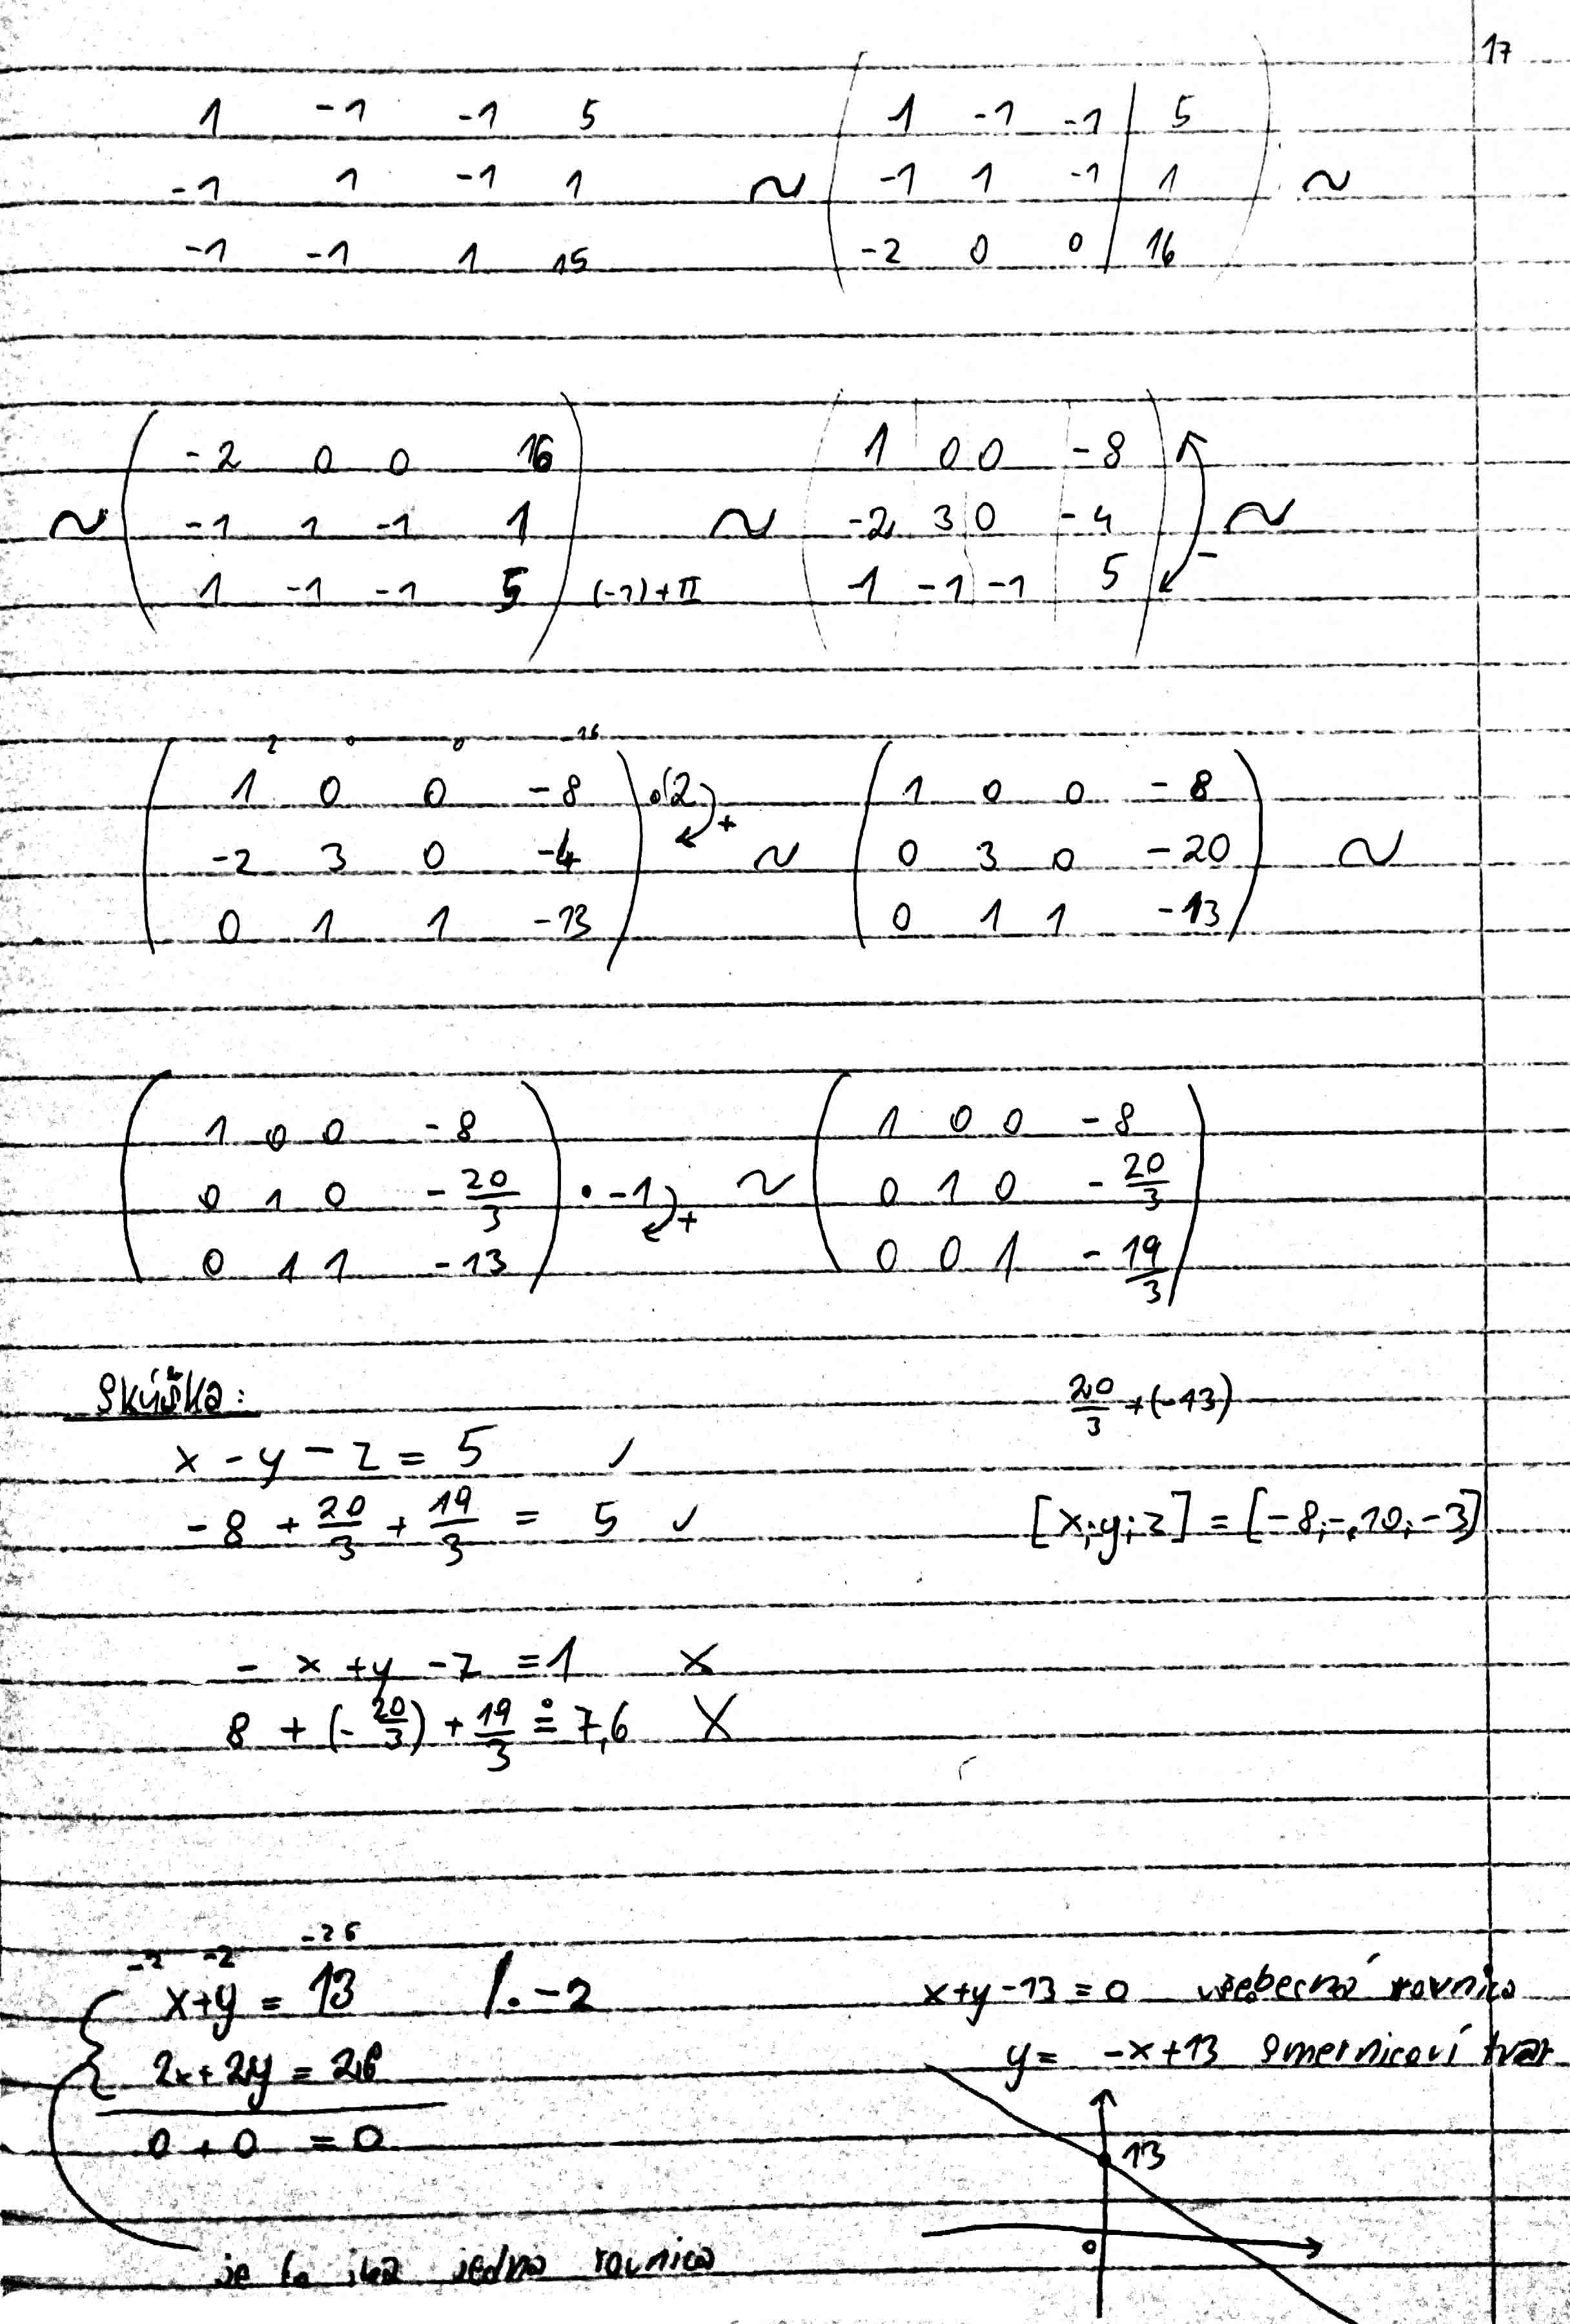 17
1 -1 -1 5
-1 1 -1 1
-1 -1 1 15
~ ( 1 -1 -1 | 5
-1 1 -1 | 1
-2 0 0 | 16 ) ~
~ ( -2 0 0 16
-1 1 -1 1
1 -1 -1 5 ) (-1)+II
~ ( 1 0 0 -8
-2 3 0 -4
1 -1 -1 5 ) - ~
2 0 0 -16
( 1 0 0 -8
-2 3 0 -4
0 1 1 -13 ) ·(2) +
~ ( 1 0 0 -8
0 3 0 -20
0 1 1 -13 ) ~
( 1 0 0 -8
0 1 0 -20/3
0 1 1 -13 ) · -1 +
~ ( 1 0 0 -8
0 1 0 -20/3
0 0 1 -19/3 )
Skúška:
20/3 +(-13)
x - y - z = 5 ✓
-8 + 20/3 + 19/3 = 5 ✓
[x;y;z] = [-8;-10;-3]
- x + y - z = 1 X
8 + (-20/3) + 19/3 ≐ 7,6 X
-2 -2 -26
x+y = 13 /· -2
2x+2y = 26
0 + 0 = 0
je to iba jedna rovnica
x+y-13 = 0 všeobecná rovnica
y = -x+13 smernicoví tvar
13
0